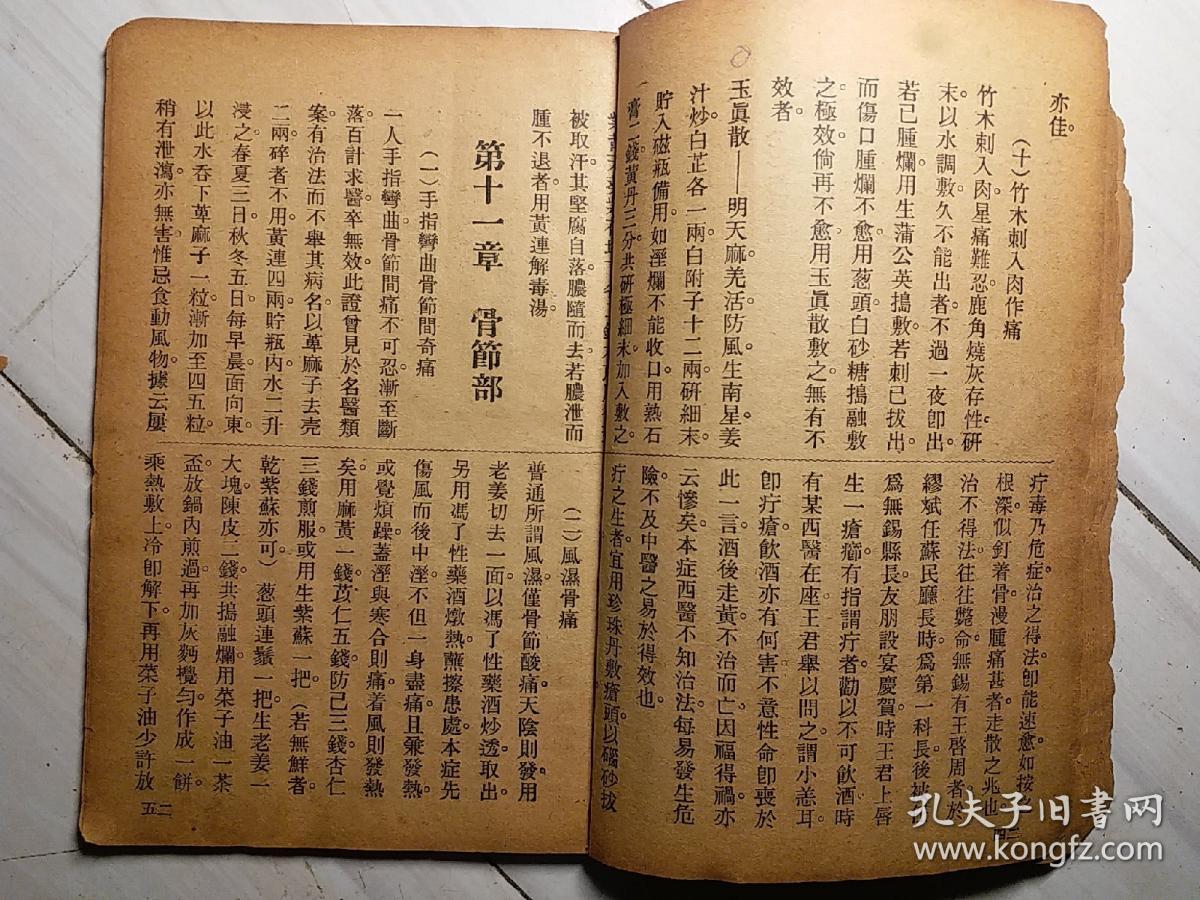 亦佳。
（十）竹木刺入肉作痛
竹木刺入肉。星痛難忍。鹿角燒灰存性。研
末以水調敷。久不能出者。不過一夜卽出。
若已腫爛。用生蒲公英搗敷。若刺已拔出。
而傷口腫爛不愈。用葱頭白砂糖搗融敷
之極效。倘再不愈。用玉眞散敷之。無有不
效者。
玉眞散——明天麻。羌活。防風。生南星。姜
汁炒。白芷各一兩。白附子十二兩。研細末。
貯入磁瓶備用。如溼爛不能收口。用熟石
膏二錢。黃丹三分。共研極細末。加入敷之。
疔毒乃危症。治之得法。卽能速愈。如按之
根深。似釘着骨。漫腫痛甚者。走散之兆也。
治不得法。往往斃命。無錫有王啓周者。於
繆斌任蘇民廳長時。爲第一科長。後
爲無錫縣長。友朋設宴慶賀。時王君上唇
生一瘡癤。有指謂疔者。勸以不可飲酒。時
有某西醫在座。王君舉以問之。謂小恙耳。
卽疔瘡飲酒。亦有何害。不意性命卽喪於
此一言。酒後走黃。不治而亡。因福得禍。亦
云慘矣。本症西醫不知治法。每易發生危
險。不及中醫之易於得效也。
疔之生者。宜用珍珠丹敷瘡頭。以磠砂拔
被取汗。其堅腐自落。膿隨而去。若膿泄而
腫不退者。用黃連解毒湯。
第十一章　骨節部
（一）手指彎曲骨節間奇痛
一人手指彎曲。骨節間痛不可忍。漸至斷
落。百計求醫。卒無效。此證曾見於名醫類
案。有治法而不舉其病名。以萆麻子去壳
二兩。碎者不用。黃連四兩。貯瓶內。水二升
浸之。春夏三日。秋冬五日。每早晨面向東
以此水吞下萆麻子一粒。漸加至四五粒。
稍有泄瀉。亦無害。惟忌食動風物。據云屢
（二）風濕骨痛
普通所謂風濕。僅骨節酸痛。天陰則發。用
老姜切去一面。以馮了性藥酒炒透取出。
另用馮了性藥酒燉熱。蘸擦患處。本症先
傷風而後中溼。不但一身盡痛。且兼發熱。
或覺煩躁。蓋溼與寒合則痛。着風則發熱
矣。用麻黃一錢。苡仁五錢。防己三錢。杏仁
三錢煎服。或用生紫蘇一把（若無鮮者。
乾紫蘇亦可）葱頭連鬚一把。生老姜一
大塊。陳皮二錢。共搗融爛。用菜子油一茶
盃。放鍋內煎過。再加灰麪攪勻。作成一餅。
乘熱敷上。冷卽解下。再用菜子油少許。放
二五
孔夫子旧书网
www.kongfz.com